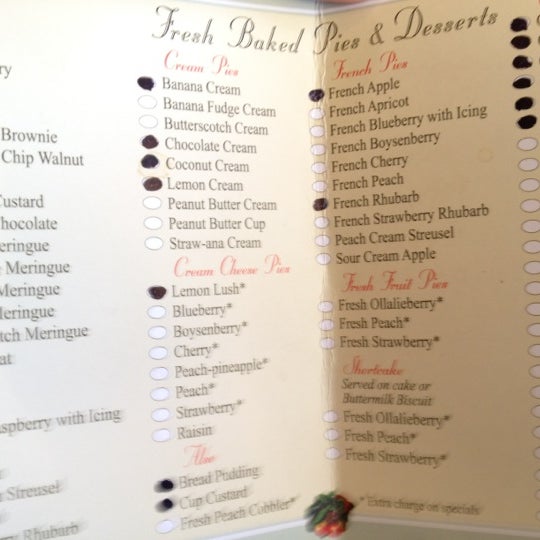 Fresh Baked Pies & Desserts
Brownie
Chip Walnut
Chocolate
Meringue
Meringue
Meringue
Meringue
with Icing
Streusel
Rhubarb
Cream Pies
Banana Cream
Banana Fudge Cream
Butterscotch Cream
Chocolate Cream
Coconut Cream
Lemon Cream
Peanut Butter Cream
Peanut Butter Cup
Straw-ana Cream
Cream Cheese Pies
Lemon Lush*
Blueberry*
Boysenberry*
Cherry*
Peach-pineapple*
Peach*
Strawberry*
Raisin
Also
Bread Pudding
Cup Custard
Fresh Peach Cobbler*
French Pies
French Apple
French Apricot
French Blueberry with Icing
French Boysenberry
French Cherry
French Peach
French Rhubarb
French Strawberry Rhubarb
Peach Cream Streusel
Sour Cream Apple
Fresh Fruit Pies
Fresh Ollalieberry*
Fresh Peach*
Fresh Strawberry*
Shortcake
Served on cake or
Buttermilk Biscuit
Fresh Ollalieberry*
Fresh Peach*
Fresh Strawberry*
* Extra charge on specials